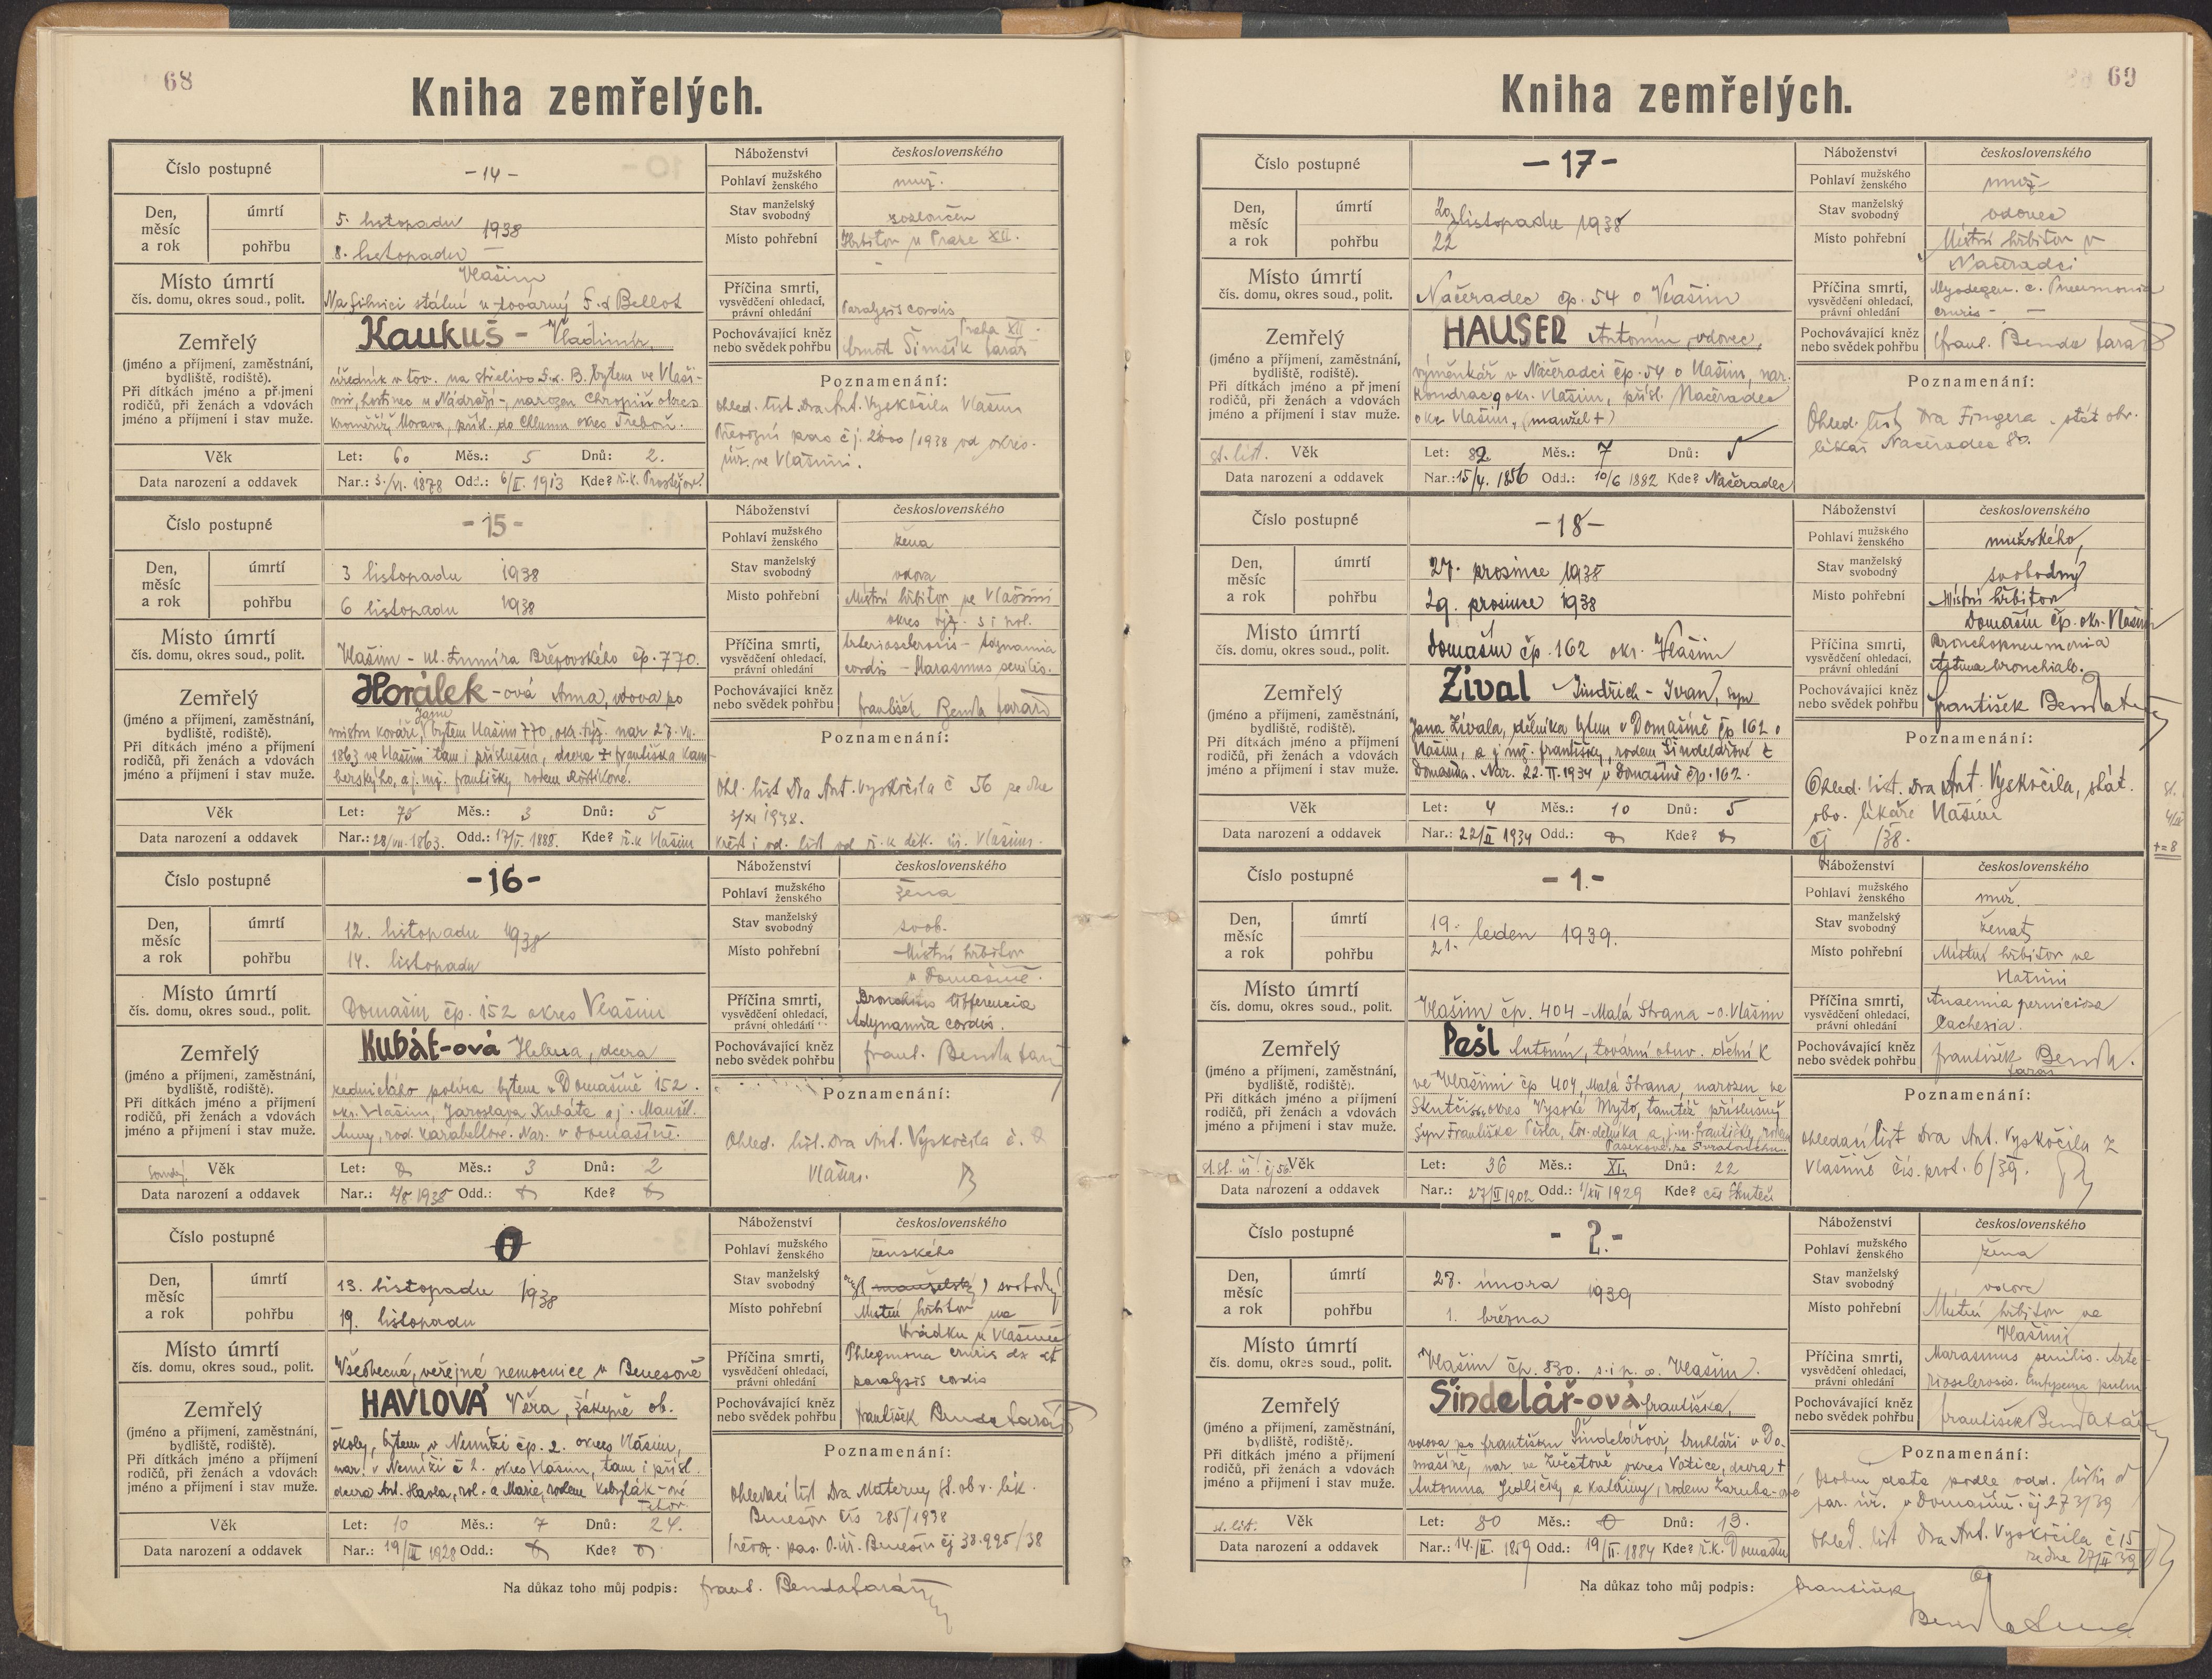 68
Kniha zemřelých.
Číslo postupné
-14-
Náboženství československého
Pohlaví mužského ženského muž.
Den, měsíc a rok
úmrtí 5. listopadu 1938
pohřbu 8. listopadu
Stav manželský svobodný rozloučen
Místo pohřební Hřbitov v Praze XII.
Místo úmrtí
čís. domu, okres soud., polit.
Vlašim
Na silnici státní u továrny S. & Bellot
Příčina smrti,
vysvědčení ohledací,
právní ohledání
Paralysis cordis
Zemřelý
(jméno a příjmení, zaměstnání,
bydliště, rodiště).
Při dítkách jméno a příjmení
rodičů, při ženách a vdovách
jméno a příjmení i stav muže.
Kaukuš - Vladimír,
úředník v tov. na střelivo S. & B. bytem ve Vlaši-
mi, hostinec u Nádraží -, narozen Chropiň okres
Kroměříž, Morava, přísl. do Chlumu okres Třeboň.
Pochovávající kněz
nebo svědek pohřbu
Praha XII.
Arnošt Šimšík farář
Poznamenání:
Ohled. list. Dra. Ant. Vyskočila Vlašim
Převozní pas čj. /1938 od okres.
úř. ve Vlašimi.
Věk Let: 60 Měs.: 5 Dnů: 2.
Data narození a oddavek Nar.: 3./VI. 1878 Odd.: 6/II. 1913 Kde? ř.k. Prostějov.
Číslo postupné
-15-
Náboženství československého
Pohlaví mužského ženského žena
Den, měsíc a rok
úmrtí 3 listopadu 1938
pohřbu 6 listopadu 1938
Stav manželský svobodný vdova
Místo pohřební Místní hřbitov ve Vlašimi
okres týž. s i pol.
Místo úmrtí
čís. domu, okres soud., polit.
Vlašim - ul. Emmíra Břejovského čp. 770.
Příčina smrti,
vysvědčení ohledací,
právní ohledání
Arteriosclerosis - Adynamia
cordis - Marasmus senilis.
Zemřelý
(jméno a příjmení, zaměstnání,
bydliště, rodiště).
Při dítkách jméno a příjmení
rodičů, při ženách a vdovách
jméno a příjmení i stav muže.
Horálek-ová Anna, vdova po
Janu
mistru kováři, bytem Vlašim 770, okr. týž. nar 27. VII.
1863 ve Vlašimi tam i příslušná, dcera + Františka Kam-
berského, a j. mž. Františky rodem
Pochovávající kněz
nebo svědek pohřbu
František Benda farář
Poznamenání:
Ohl. list Dra Ant. Vyskočila č 56 ze dne
3/XI 1938.
Křest i od. list od ř.k. děk. úř. Vlašim.
Věk Let: 75 Měs.: 3 Dnů: 5
Data narození a oddavek Nar.: 28/VII. 1863. Odd.: 17/V. 1888. Kde? ř.k Vlašim
Číslo postupné
-16-
Náboženství československého
Pohlaví mužského ženského žena
Den, měsíc a rok
úmrtí 12. listopadu 1938
pohřbu 14. listopadu
Stav manželský svobodný svob.
Místo pohřební Místní hřbitov
v Domašíně.
Místo úmrtí
čís. domu, okres soud., polit.
Domašín čp. 152 okres Vlašim
Příčina smrti,
vysvědčení ohledací,
právní ohledání
Bronchitis
Adynamia cordis.
Zemřelý
(jméno a příjmení, zaměstnání,
bydliště, rodiště).
Při dítkách jméno a příjmení
rodičů, při ženách a vdovách
jméno a příjmení i stav muže.
Kubát-ová Helena, dcera
zednického políra bytem v Domašíně 152.
okr. Vlašim, Jaroslava Kubáta a j. Manžel.
Anny, rod. Karabellové. Nar. v Domašíně.
Pochovávající kněz
nebo svědek pohřbu
Frant. Benda far.
Poznamenání:
Ohled. list. Dra Ant. Vyskočila č.
Vlašim.
Věk Let: Měs.: 3 Dnů: 2
Data narození a oddavek Nar.: 2/8 1938 Odd.: Kde?
Číslo postupné
0
Náboženství československého
Pohlaví mužského ženského ženského
Den, měsíc a rok
úmrtí 13. listopadu 1938
pohřbu 19. listopadu
Stav manželský svobodný (manželský) svobodný
Místo pohřební Místní hřbitov na
Hrádku u Vlašimě
Místo úmrtí
čís. domu, okres soud., polit.
Všeobecná, veřejná nemocnice v Benešově
Příčina smrti,
vysvědčení ohledací,
právní ohledání
Phlegmona cruris dx et
paralysis cordis
Zemřelý
(jméno a příjmení, zaměstnání,
bydliště, rodiště).
Při dítkách jméno a příjmení
rodičů, při ženách a vdovách
jméno a příjmení i stav muže.
HAVLOVÁ Věra, žákyně ob.
školy, bytem v Nemíži čp. 2. okres Vlašim,
nar. v Nemíži č 2. okres Vlašim, tam i přísl.
dcera Ant. Havla, rol. a Marie, rodem Kobylák-ové
Pochovávající kněz
nebo svědek pohřbu
František Benda farář
Poznamenání:
Ohledací list Dra Materny st. obv. lék.
Benešov čís 285/1938
Převoz. pas. O. úř. Benešov čj 38.995/38
Věk Let: 10 Měs.: 7 Dnů: 24.
Data narození a oddavek Nar.: 19/III 1928 Odd.: Kde?
Na důkaz toho můj podpis: Frant. Benda farář
69
Kniha zemřelých.
Číslo postupné
-17-
Náboženství československého
Pohlaví mužského ženského muž
Den, měsíc a rok
úmrtí 20 listopadu 1938
pohřbu 22
Stav manželský svobodný vdovec
Místo pohřební Místní hřbitov v
Načeradci
Místo úmrtí
čís. domu, okres soud., polit.
Načeradec čp. 54 o Vlašim
Příčina smrti,
vysvědčení ohledací,
právní ohledání
Myodegen. c. Pneumonia
cruris -
Zemřelý
(jméno a příjmení, zaměstnání,
bydliště, rodiště).
Při dítkách jméno a příjmení
rodičů, při ženách a vdovách
jméno a příjmení i stav muže.
HAUSER Antonín, vdovec,
výměnkář v Načeradci čp. 54 o Vlašim, nar.
Kondrac okr. Vlašim, přísl. Načeradec
okr Vlašim, (manžel +)
Pochovávající kněz
nebo svědek pohřbu
Frant. Benda farář
Poznamenání:
Ohled. list Dra Fingera - stát obv.
lékař Načeradec 80.
st. list. Věk Let: 82 Měs.: 7 Dnů: 5
Data narození a oddavek Nar.: 15/4. 1856 Odd.: 10/6 1882 Kde? Načeradec
Číslo postupné
-18-
Náboženství československého
Pohlaví mužského ženského mužského,
Den, měsíc a rok
úmrtí 27. prosince 1938
pohřbu 29. prosince 1938
Stav manželský svobodný svobodný
Místo pohřební Místní hřbitov
Domašín čp. okr. Vlašim
Místo úmrtí
čís. domu, okres soud., polit.
Domašín čp. 162 okr. Vlašim
Příčina smrti,
vysvědčení ohledací,
právní ohledání
Bronchopneumonia
Astma bronchiale.
Zemřelý
(jméno a příjmení, zaměstnání,
bydliště, rodiště).
Při dítkách jméno a příjmení
rodičů, při ženách a vdovách
jméno a příjmení i stav muže.
Zíval Jindřich - Ivan, syn
Jana Zívala, dělníka bytem v Domašíně čp 162 o
Vlašim, a j. mž. Františky, rodem Šindelářové z
Domašína. Nar. 22. II. 1934 v Domašíně čp. 162.
Pochovávající kněz
nebo svědek pohřbu
František Benda
Poznamenání:
Ohled. list. Dra Ant. Vyskočila, stát.
obv. lékaře Vlašim
čj /38.
Věk Let: 4 Měs.: 10 Dnů: 5
Data narození a oddavek Nar.: 22/II 1934 Odd.: Kde?
Číslo postupné
-1.-
Náboženství československého
Pohlaví mužského ženského muž.
Den, měsíc a rok
úmrtí 19. leden 1939.
pohřbu 21.
Stav manželský svobodný ženatý
Místo pohřební Místní hřbitov ve
Vlašimi
Místo úmrtí
čís. domu, okres soud., polit.
Vlašim čp. 404 - Malá Strana - o. Vlašim
Příčina smrti,
vysvědčení ohledací,
právní ohledání
Anaemia perniciosa
Cachexia.
Zemřelý
(jméno a příjmení, zaměstnání,
bydliště, rodiště).
Při dítkách jméno a příjmení
rodičů, při ženách a vdovách
jméno a příjmení i stav muže.
Pešl Antonín, tovární obuv. dělník
ve Vlašimi čp 404, Malá Strana, narozen ve
Skutči, okres Vysoké Mýto, tamtéž příslušný
Syn Františka Pešla, tov. dělníka a j. m. Františky, rodem
Pochovávající kněz
nebo svědek pohřbu
František Benda.
farář
Poznamenání:
Ohledací list Dra Ant. Vyskočila z
Vlašimě čís. prot. 6/39.
Věk Let: 36 Měs.: XI. Dnů: 22
Data narození a oddavek Nar.: 27/II 1902 Odd.: 1/XII 1929 Kde? čs Skuteč
Číslo postupné
-2.-
Náboženství československého
Pohlaví mužského ženského žena
Den, měsíc a rok
úmrtí 27. února 1939
pohřbu 1. března
Stav manželský svobodný vdova
Místo pohřební Místní hřbitov ve
Vlašimi
Místo úmrtí
čís. domu, okres soud., polit.
Vlašim čp. 830. s. i p. o. Vlašim.
Příčina smrti,
vysvědčení ohledací,
právní ohledání
Marasmus senilis. Arte-
riosclerosis. Emfysema pulm.
Zemřelý
(jméno a příjmení, zaměstnání,
bydliště, rodiště).
Při dítkách jméno a příjmení
rodičů, při ženách a vdovách
jméno a příjmení i stav muže.
Šindelář-ová Františka,
vdova po Františku Šindelářovi, truhláři v Do-
mašíně, nar ve Zvěstově okres Votice, dcera +
Antonína Jedličky a Kateřiny, rodem Záruba-ové
Pochovávající kněz
nebo svědek pohřbu
František Benda farář
Poznamenání:
Osobní data podle odd. listu
far. úř. v Domašíně. čj 273/39
Ohled. list Dra Ant. Vyskočila č 15
ze dne 27/II 39
st. list. Věk Let: 80 Měs.: 0 Dnů: 13.
Data narození a oddavek Nar.: 14./II. 1859 Odd.: 19/II. 1884 Kde? ř.k. Domašín
Na důkaz toho můj podpis: František
Benda